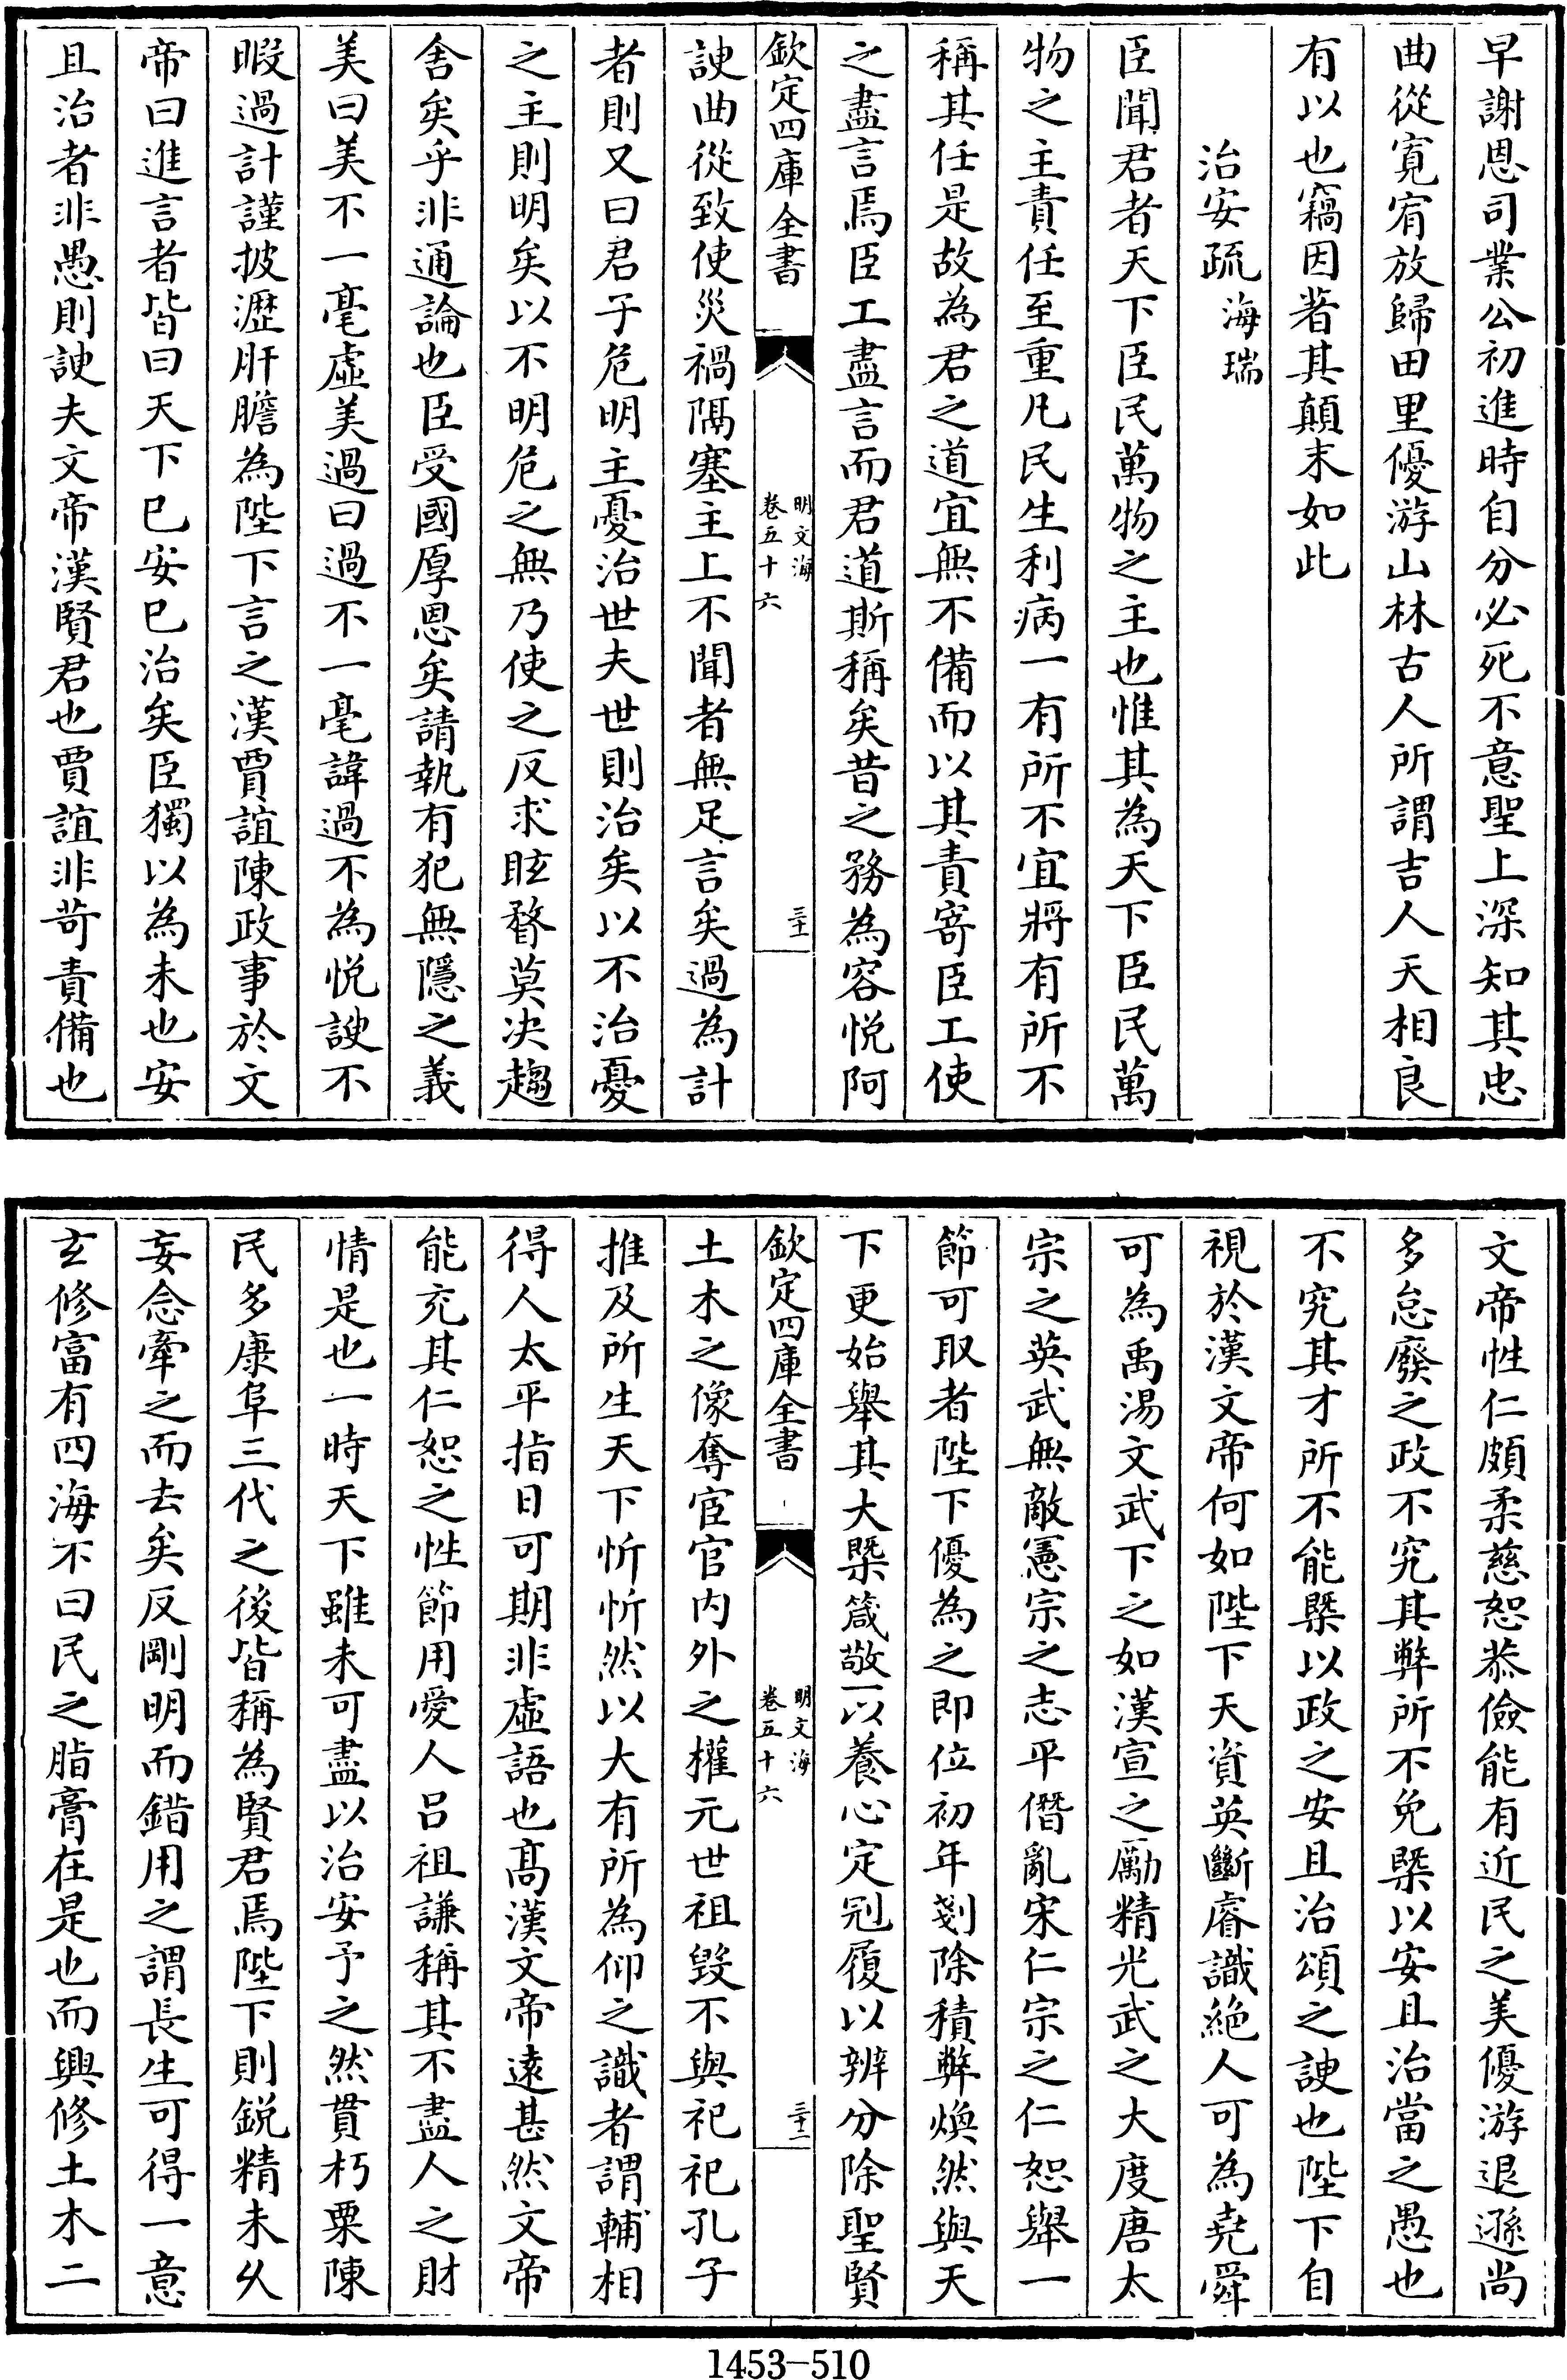 早謝恩司業公初進時自分必死不意聖上深知其忠
曲從寛宥放歸田里優游山林古人所謂吉人天相良
有以也竊因著其顛末如此
治安疏 海瑞
臣聞君者天下臣民萬物之主也惟其為天下臣民萬
物之主責任至重凡民生利病一有所不宜將有所不
稱其任是故為君之道宜無不備而以其責寄臣工使
之盡言焉臣工盡言而君道斯稱矣昔之務為容悦阿
欽定四庫全書
明文海
卷五十六
三十一
諛曲從致使災禍隔塞主上不聞者無足言矣過為計
者則又曰君子危明主憂治世夫世則治矣以不治憂
之主則明矣以不明危之無乃使之反求眩瞀莫决趨
舍矣乎非通論也臣受國厚恩矣請執有犯無隱之義
美曰美不一毫虚美過曰過不一毫諱過不為悦諛不
暇過計謹披瀝肝膽為陛下言之漢賈誼陳政事於文
帝曰進言者皆曰天下已安已治矣臣獨以為未也安
且治者非愚則諛夫文帝漢賢君也賈誼非苛責備也
文帝性仁頗柔慈恕恭儉能有近民之美優游退遜尚
多怠廢之政不究其弊所不免槩以安且治當之愚也
不究其才所不能槩以政之安且治頌之諛也陛下自
視於漢文帝何如陛下天資英斷睿識絶人可為堯舜
可為禹湯文武下之如漢宣之勵精光武之大度唐太
宗之英武無敵憲宗之志平僭亂宋仁宗之仁恕舉一
節可取者陛下優為之即位初年剗除積弊煥然與天
下更始舉其大槩箴敬一以養心定冠履以辨分除聖賢
欽定四庫全書
明文海
卷五十六
三十二
土木之像奪宦官内外之權元世祖毀不與祀祀孔子
推及所生天下忻忻然以大有所為仰之識者謂輔相
得人太平指日可期非虚語也髙漢文帝遠甚然文帝
能充其仁恕之性節用愛人吕祖謙稱其不盡人之財
情是也一時天下雖未可盡以治安予之然貫朽粟陳
民多康阜三代之後皆稱為賢君焉陛下則鋭精未久
妄念牽之而去矣反剛明而錯用之謂長生可得一意
玄修富有四海不曰民之脂膏在是也而興修土木二
1453-510